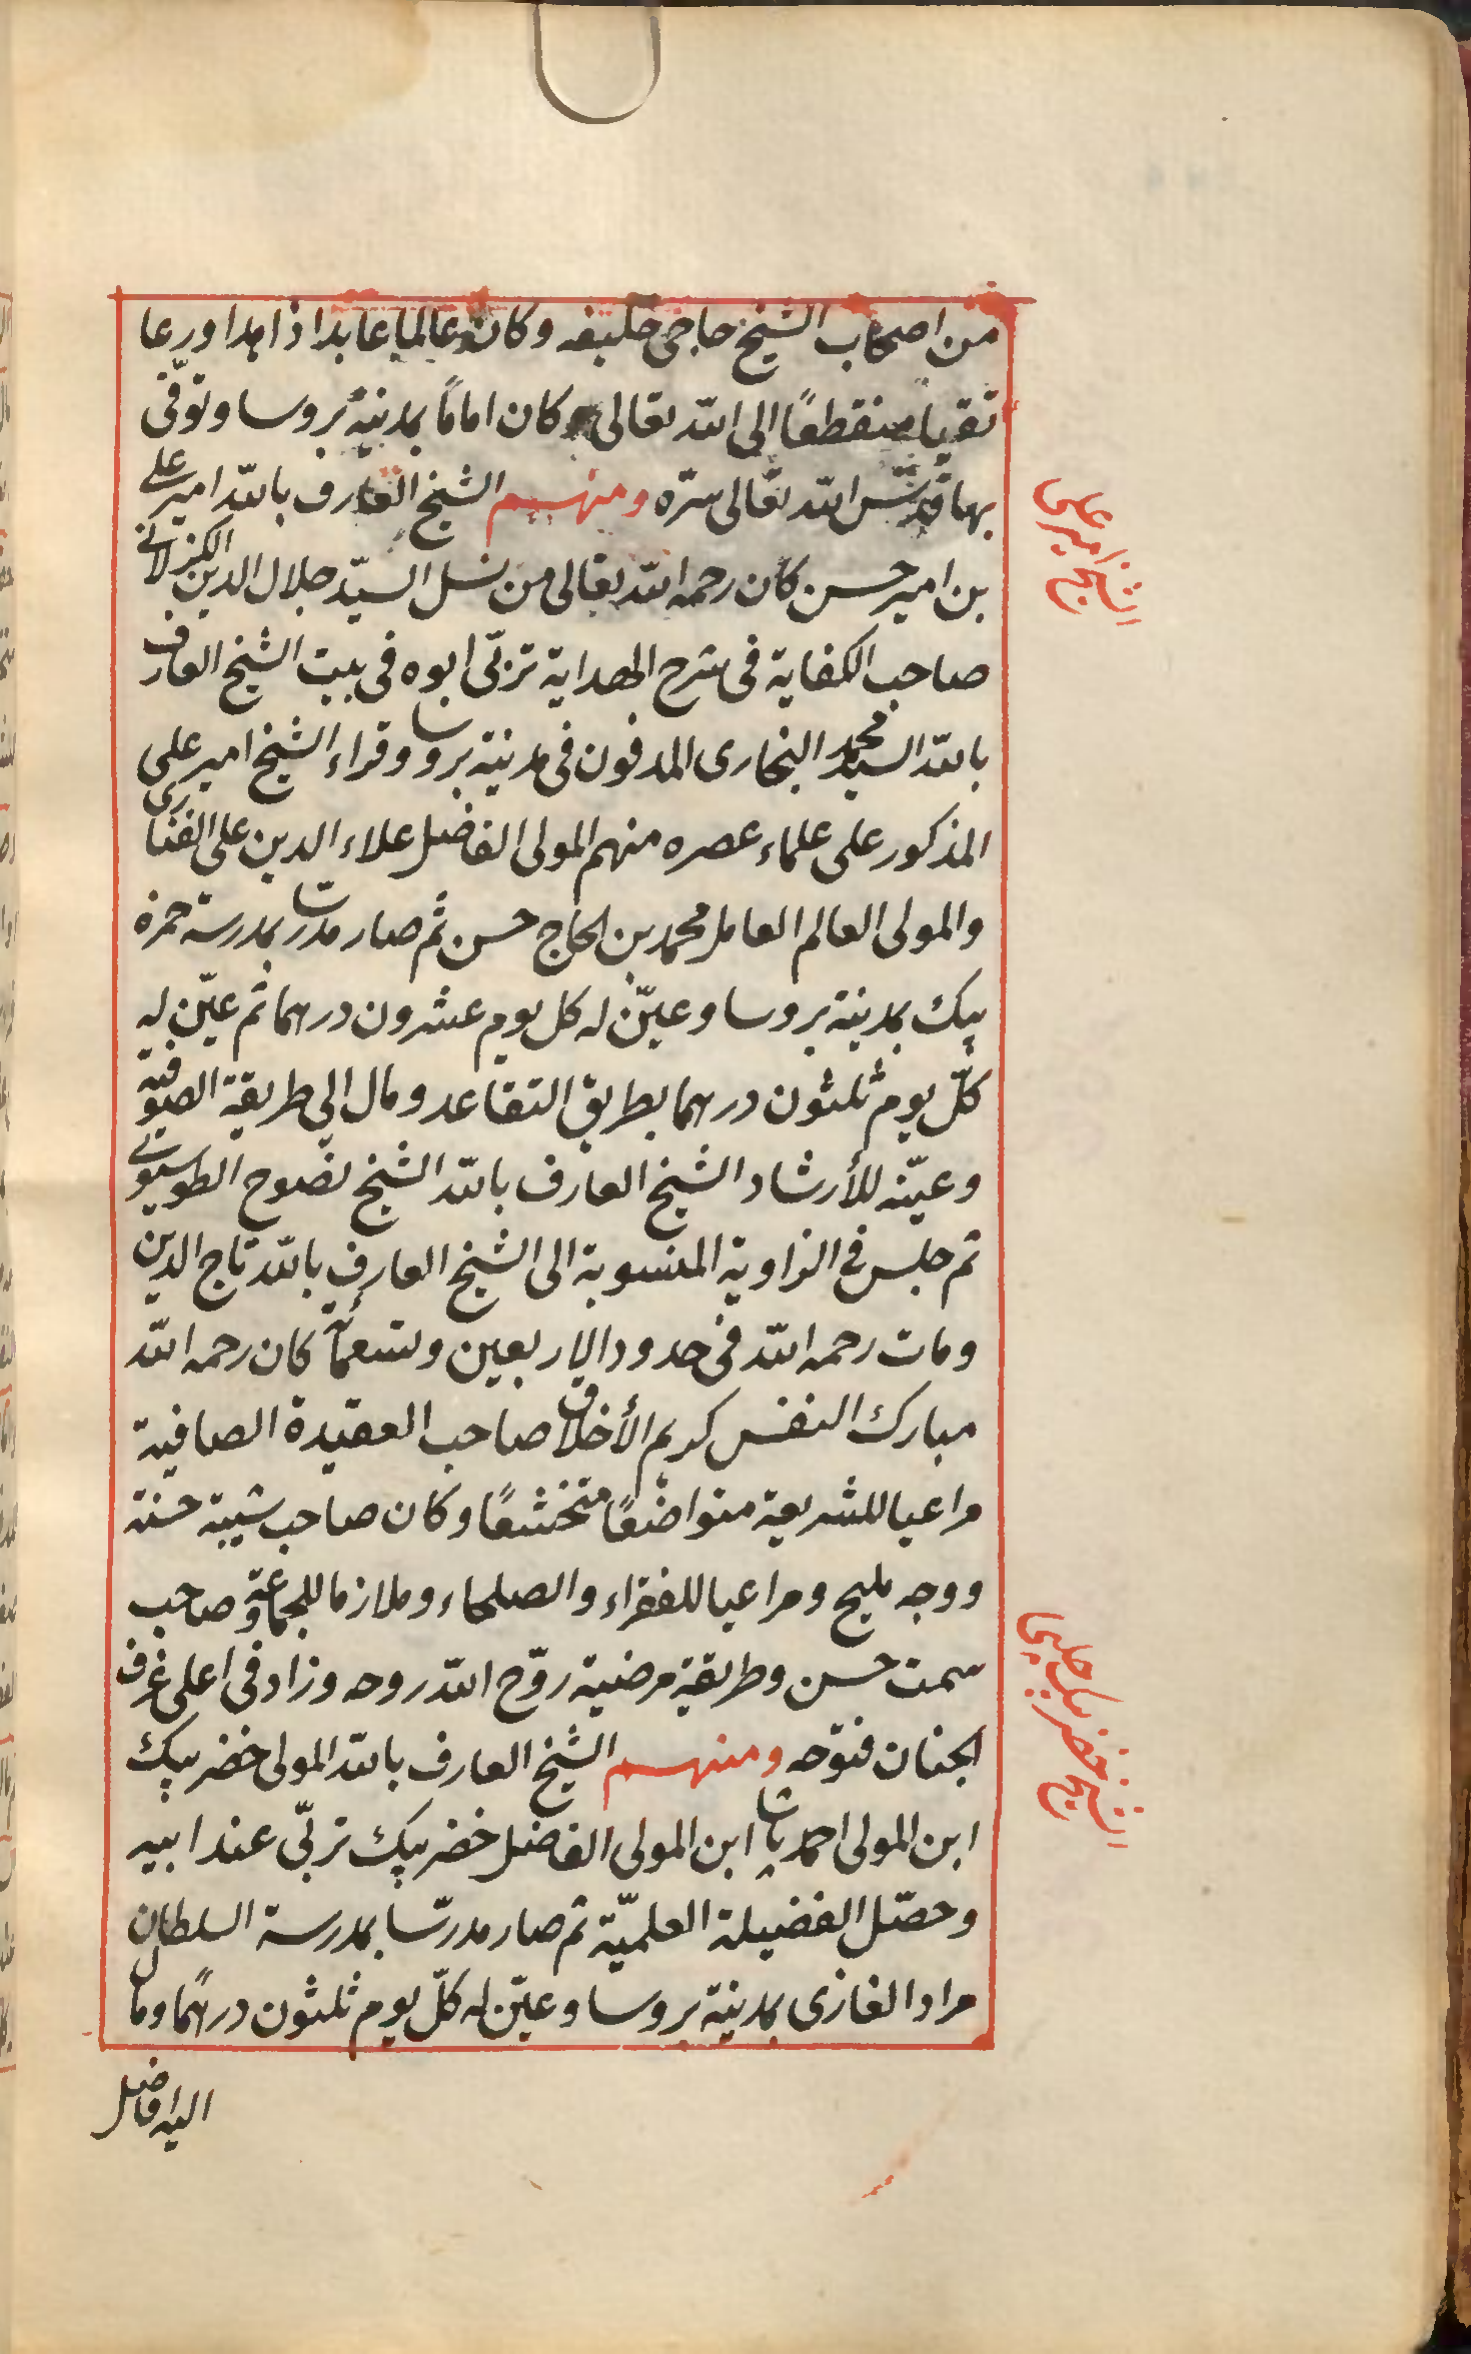 من اصحاب الشيخ حاجى خليفه وكان عالما عابدا زاهدا ورعا
تقيا منقطعًا الى الله تعالى وكان امامًا بمدينة بروسا وتوفّى
بها قدّس الله تعالى سرّه ومنهم الشيخ العارف بالله امير على
بن امير حسن كان رحمه الله تعالى من نسل السيّد جلال الدين الكزلانى
صاحب الكفاية فى شرح الهداية تربّى ابوه فى بيت الشيخ العارف
بالله السيد محمد البخارى المدفون فى مدينة بروسا وقراء الشيخ امير على
المذكور على علماء عصره منهم المولى الفاضل علاء الدين على الفنارى
والمولى العالم العامل محمد بن الحاج حسن ثم صار مدرسا بمدرسة حمزه
بيك بمدينة بروسا وعيّن له كل يوم عشرون درهما ثم عيّن له
كلّ يوم ثلثون درهما بطريق التقاعد ومال الى طريقة الصوفية
وعيّنه للأرشاد الشيخ العارف بالله الشيخ نصوح الطوسيوى
ثم جلس فى الزاوية المنسوبة الى الشيخ العارف بالله تاج الدين
ومات رحمه الله فى حدود الاربعين وتسعمائة كان رحمه الله
مبارك النفس كريم الأخلاق صاحب العقيدة الصافية
مراعيا للشريعة متواضعًا متخشعًا وكان صاحب شيبة حسنة
ووجه مليح ومراعيا للفقراء والصلحاء وملازما للجماعة وصاحب
سمت حسن وطريقة مرضية روّح الله روحه وزاد فى اعلى غرف
الجنان فتوحه ومنهم الشيخ العارف بالله المولى خضر بيك
ابن المولى احمد پاشا ابن المولى الفاضل خضر بيك تربّى عند ابيه
وحصّل الفضيلة العلميّة ثم صار مدرّسا بمدرسة السلطان
مراد الغازى بمدينة بروسا وعيّن له كلّ يوم ثلثون درهمًا ومال
اليه افاضل
الشيخ امير على
الشيخ خضر بيك چلبى